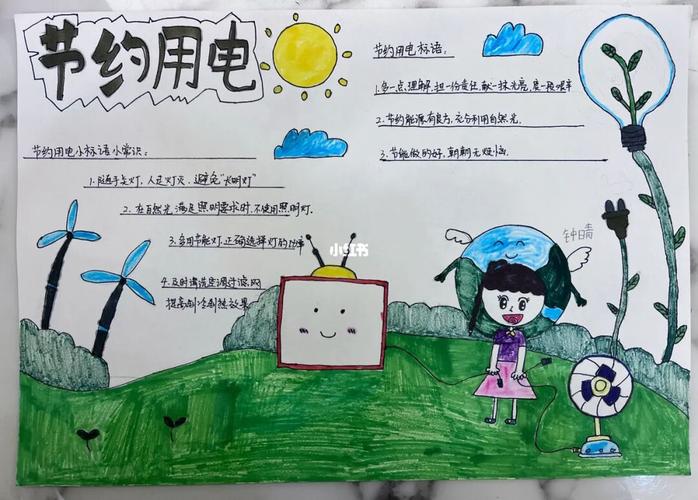 节约用电
节约用电小标语小常识:
1.随手关灯,人走灯灭,避免"长明灯"
2.在自然光满足照明要求时,不使用照明灯.
3.多用节能灯,正确选择灯的功率
4.及时清洗空调过滤网
提高制冷制热效果
节约用电标语:
1.多一点理解,担一份责任,献一抹光亮,度一段艰辛
2.节约能源有良方,充分利用自然光.
3.节能做的好,朝朝无烦恼.
钟晴
小红书